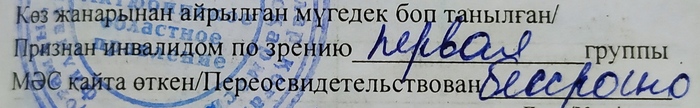 Көз жанарынан айрылған мүгедек боп танылған/
Признан инвалидом по зрению первая группы
МӘС қайта өткен/Переосвидетельствован бессрочно